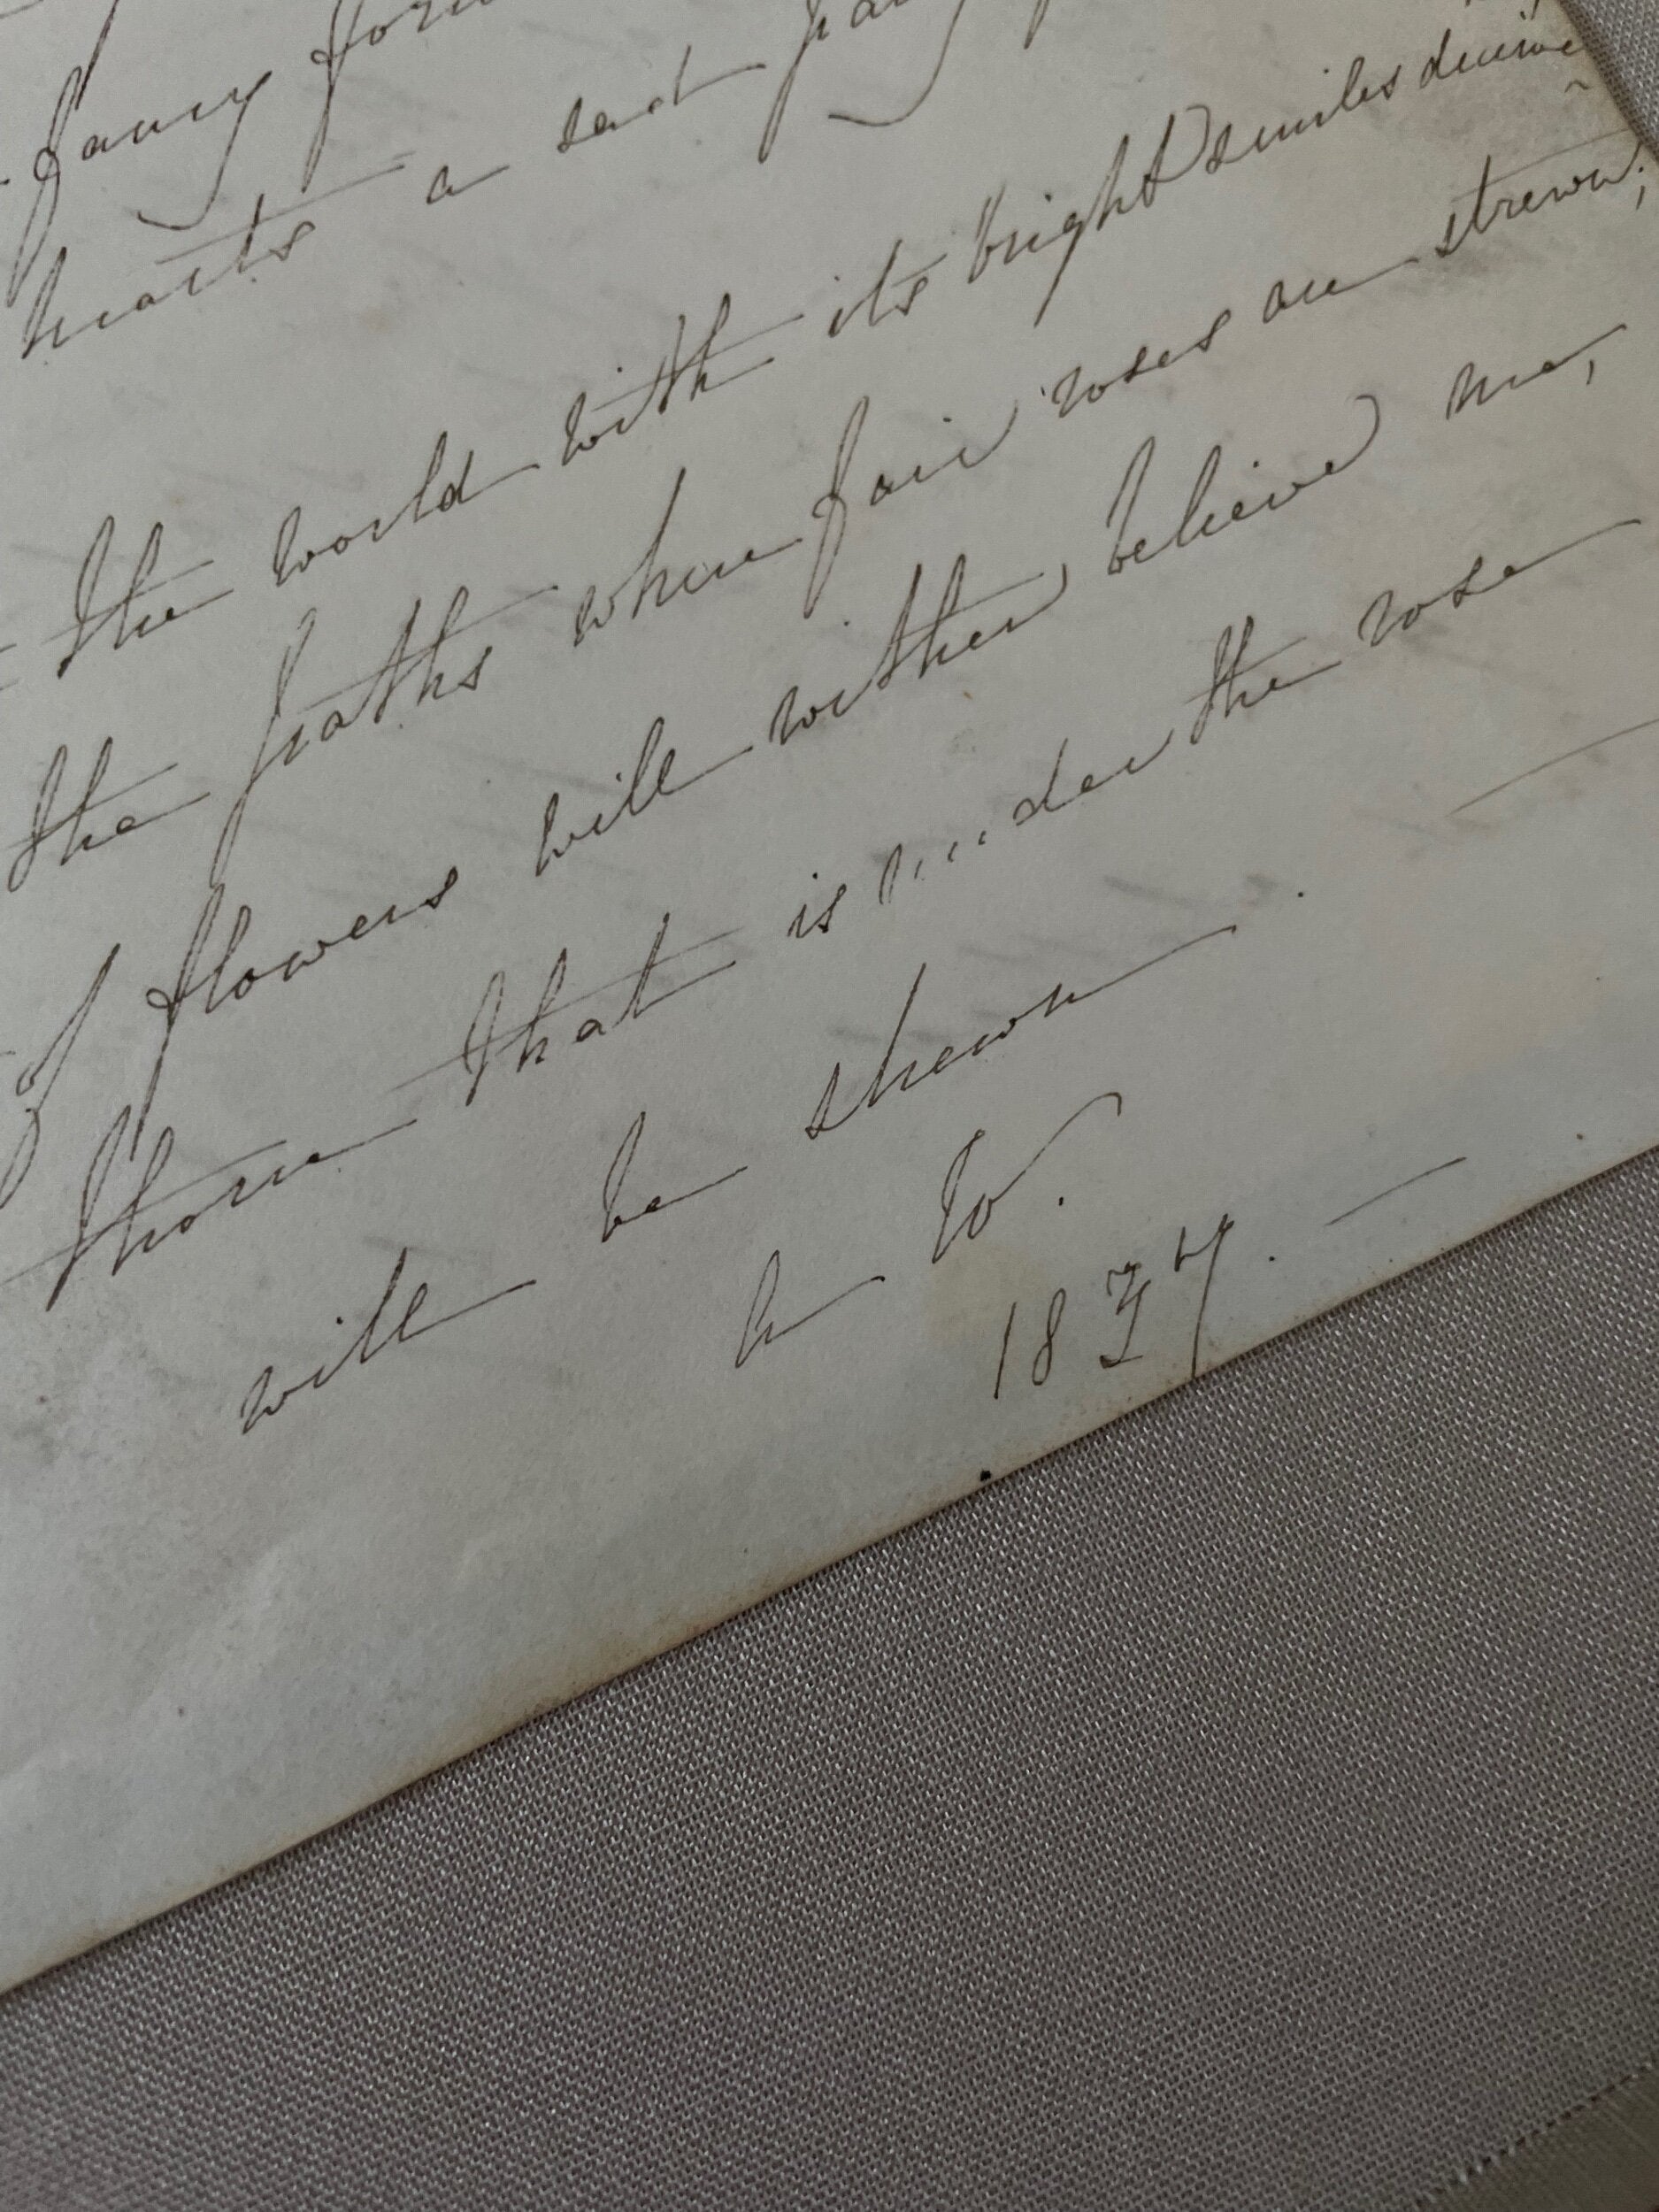 fancy
hearts a sad
the world with its bright smiles
the paths where fair roses are strewn;
of flowers will wither, believe me,
thorn that is the rose
will be shewn.
W.
1837.